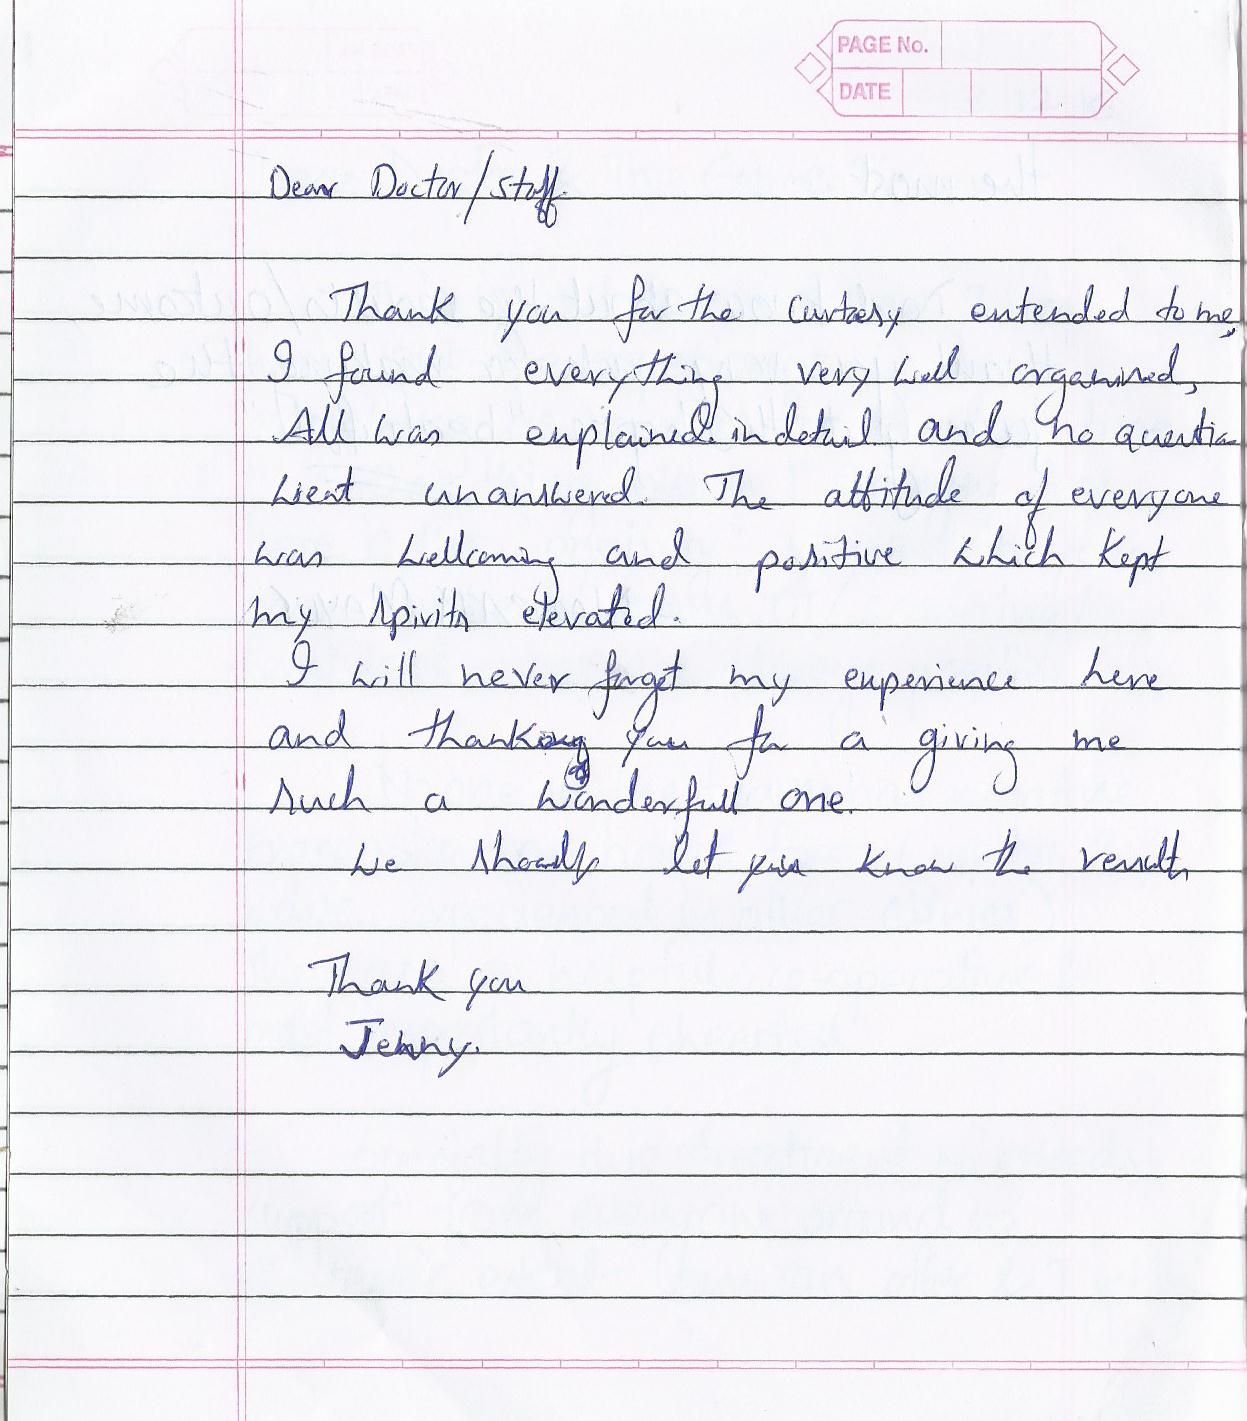 PAGE No.
DATE
Dear Doctor/Staff.
Thank you for the curtesy entended to me,
I found everything very well organised,
All was enplained. in detail and no questio
went unanswered. The attitude of everyone
was wellcoming and positive which kept
my spirits elevated.
I will never forget my enperience here
and thanking you for a giving me
such a wonderfull one.
We let you know the result,
Thank you
Jenny.